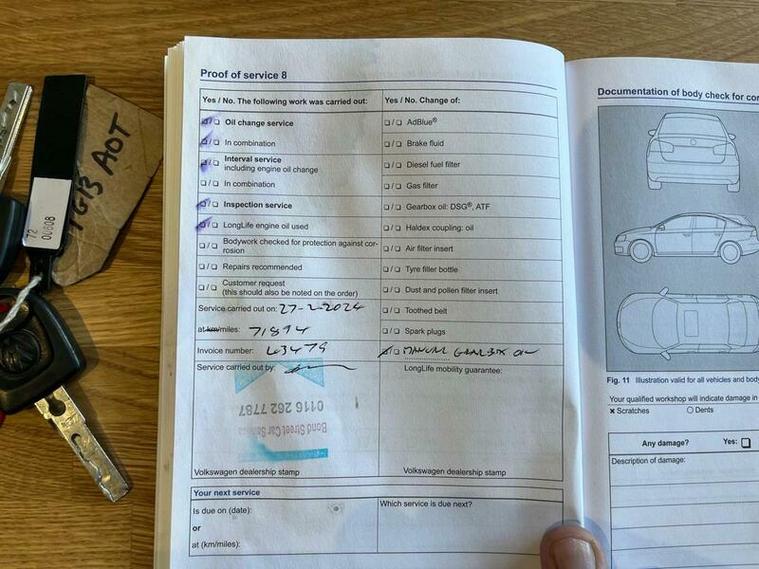 Proof of service 8
Yes / No. The following work was carried out:
Yes / No. Change of:
Oil change service
In combination
Interval service
including engine oil change
In combination
Inspection service
LongLife engine oil used
Bodywork checked for protection against cor-
rosion
Repairs recommended
Customer request
(this should also be noted on the order)
AdBlue®
Brake fluid
Diesel fuel filter
Gas filter
Gearbox oil: DSG®, ATF
Haldex coupling: oil
Air filter insert
Tyre filler bottle
Dust and pollen filter insert
Toothed belt
Spark plugs
MANUAL GEARBOX OIL
Service carried out on: 27-2-2024
at km/miles: 71894
Invoice number: 43479
Service carried out by:
LongLife mobility guarantee:
0116 262 7787
Bond Street Car
Volkswagen dealership stamp
Volkswagen dealership stamp
Your next service
Is due on (date):
or
at (km/miles):
Which service is due next?
Documentation of body check for cor
Fig. 11 Illustration valid for all vehicles and body
Your qualified workshop will indicate damage in
x Scratches
O Dents
Any damage?
Yes:
Description of damage:
72
00608
AOT